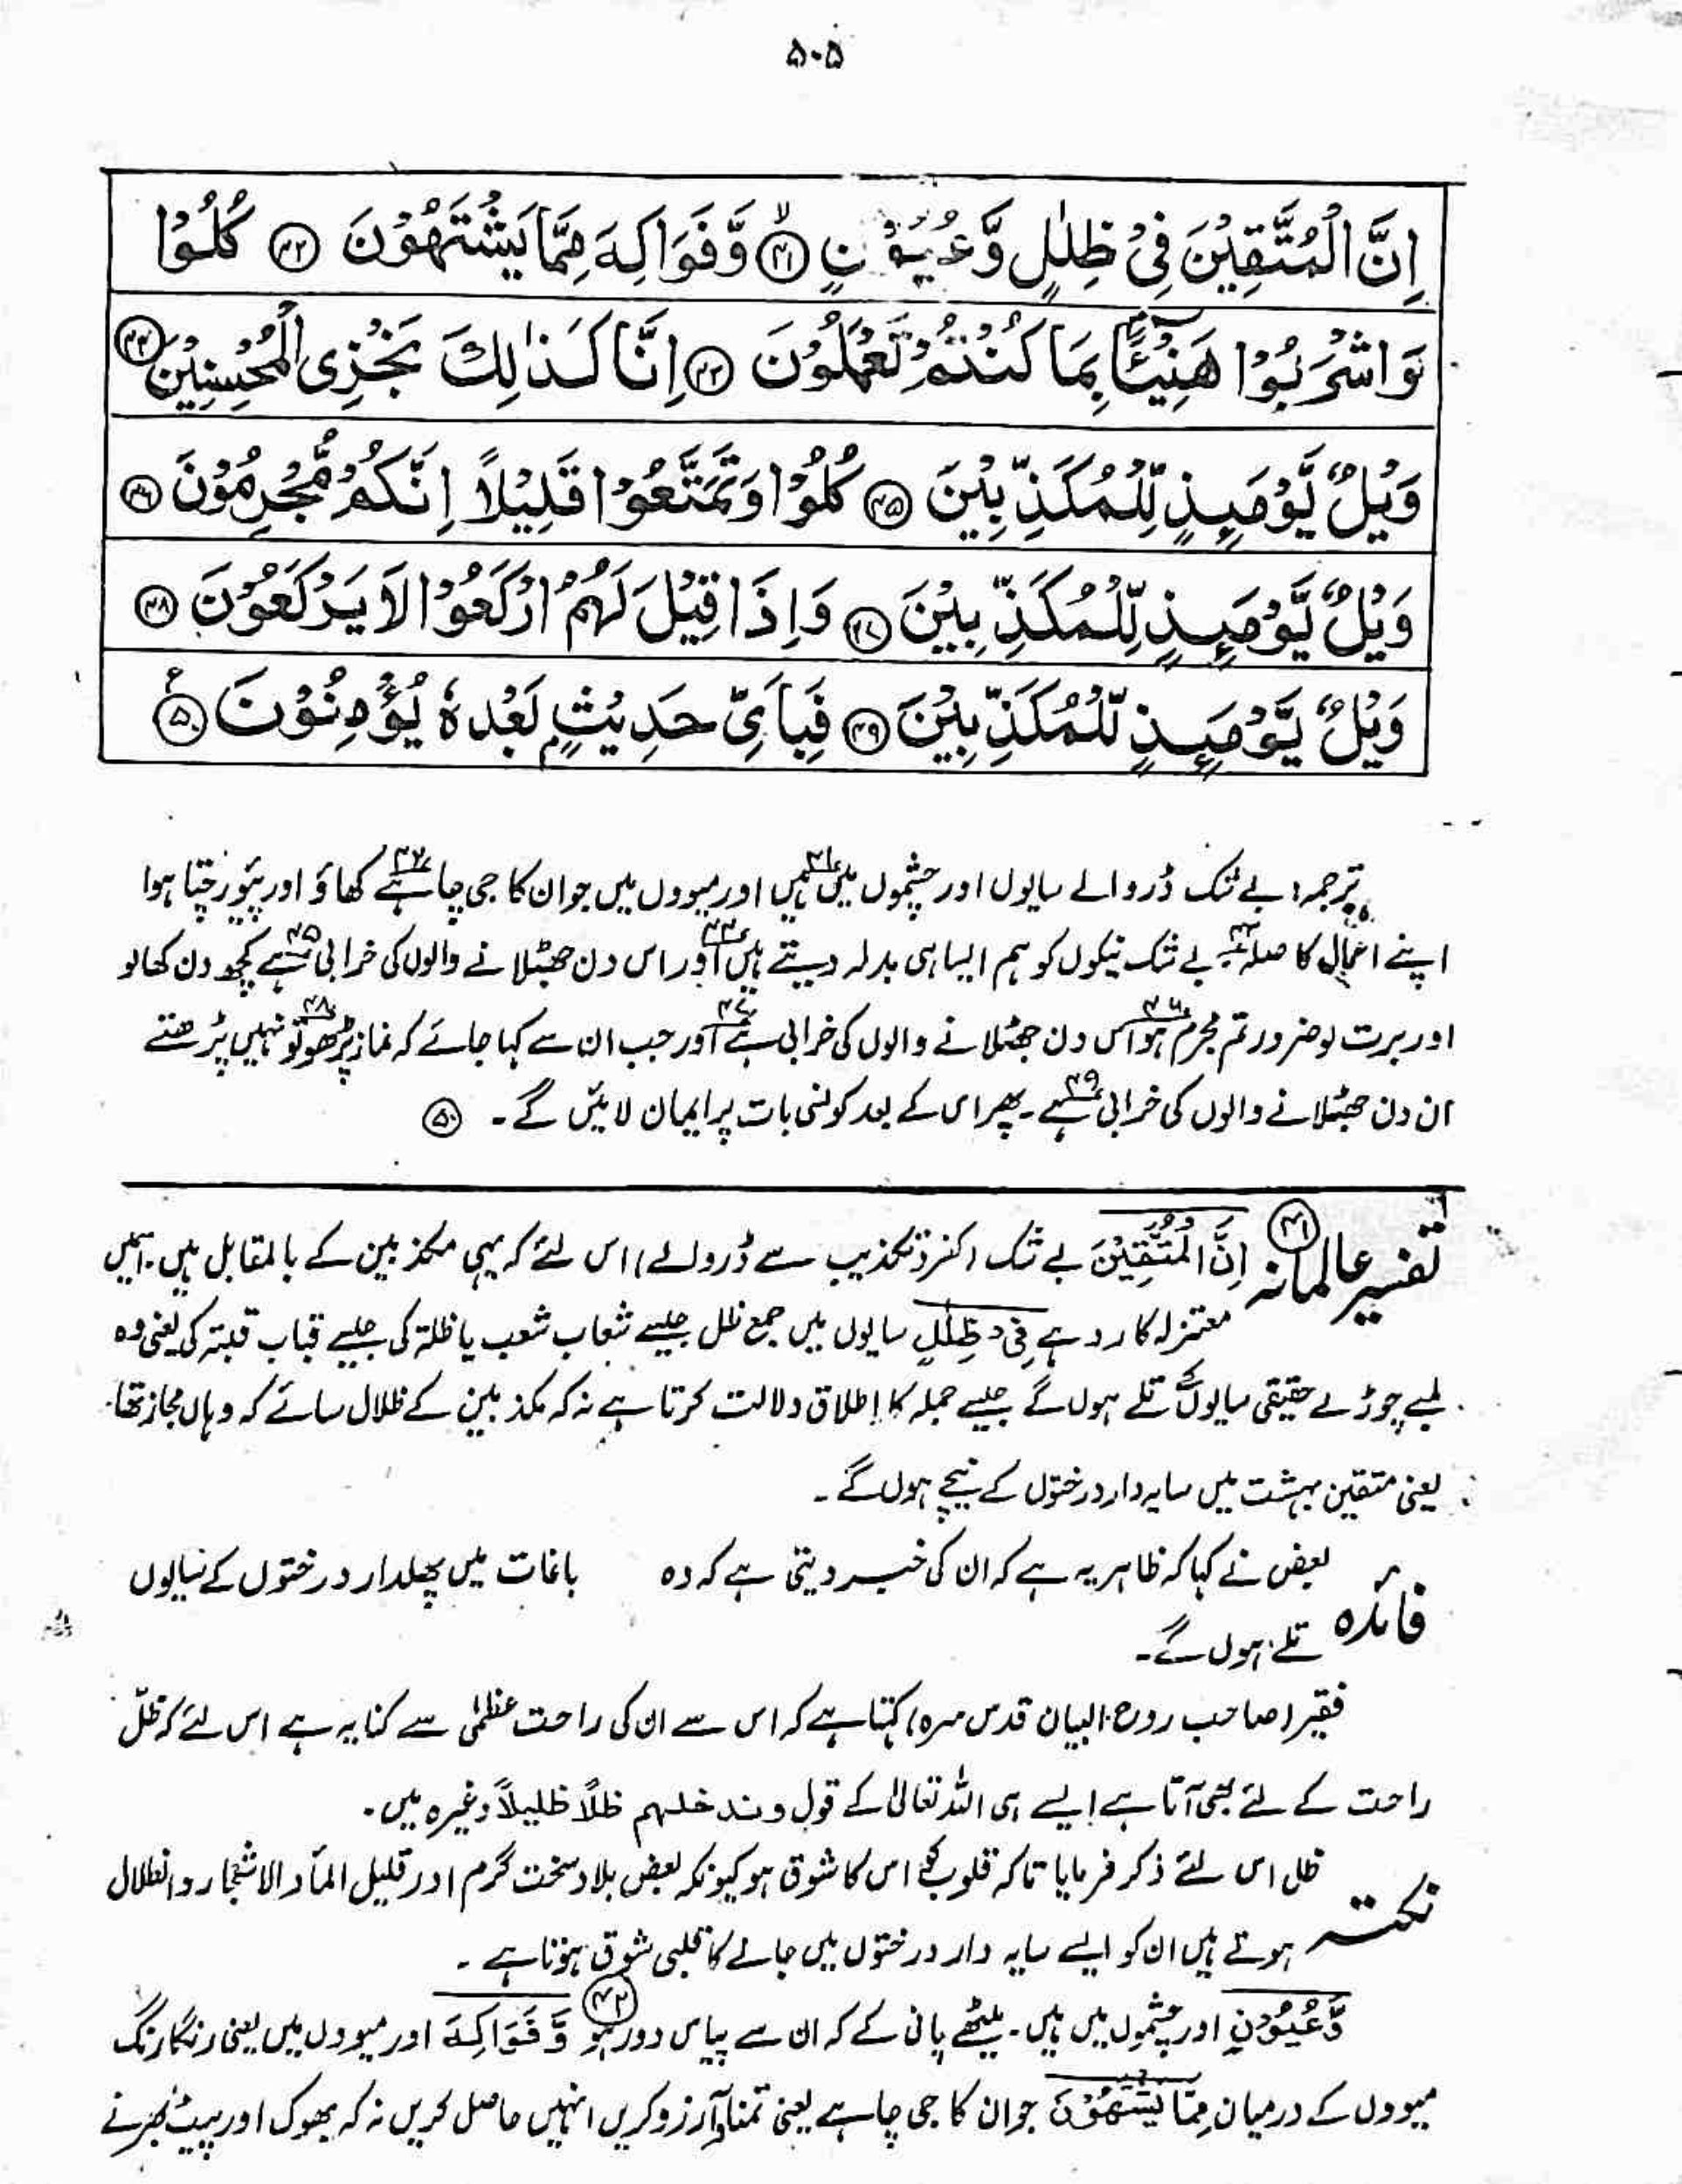 ۵۰۵
اِنَّ الْمُتَّقِیْنَ فِیْ ظِلٰلٍ وَّعُیُوْنٍ ۴۱ وَّفَوَاكِهَ مِمَّا یَشْتَهُوْنَ ۴۲ كُلُوْا
وَاشْرَبُوْا هَنِیْٓـًٔۢا بِمَا كُنْتُمْ تَعْمَلُوْنَ ۴۳ اِنَّا كَذٰلِكَ نَجْزِی الْمُحْسِنِیْنَ ۴۴
وَیْلٌ یَّوْمَىِٕذٍ لِّلْمُكَذِّبِیْنَ ۴۵ كُلُوْا وَتَمَتَّعُوْا قَلِیْلًا اِنَّكُمْ مُّجْرِمُوْنَ ۴۶
وَیْلٌ یَّوْمَىِٕذٍ لِّلْمُكَذِّبِیْنَ ۴۷ وَاِذَا قِیْلَ لَهُمُ ارْكَعُوْا لَا یَرْكَعُوْنَ ۴۸
وَیْلٌ یَّوْمَىِٕذٍ لِّلْمُكَذِّبِیْنَ ۴۹ فَبِاَیِّ حَدِیْثٍۭ بَعْدَهٗ یُؤْمِنُوْنَ ۵۰ ع
ترجمہ: بے شک ڈر والے سایوں اور چشموں میں ہیں ۴۱ اور میووں میں جو ان کا جی چاہے ۴۲ کھاؤ اور پیئو رچتا ہوا
اپنے اعمال کا صلہ ۴۳ بے شک نیکوں کو ہم ایسا ہی بدلہ دیتے ہیں ۴۴ اور اس دن جھٹلانے والوں کی خرابی ہے ۴۵ کچھ دن کھالو
اور برت لو ضرور تم مجرم ہو ۴۶ اس دن جھٹلانے والوں کی خرابی ہے ۴۷ اور جب ان سے کہا جائے کہ نماز پڑھو تو نہیں پڑھتے ۴۸
ان دن جھٹلانے والوں کی خرابی ہے ۴۹۔ پھر اس کے بعد کونسی بات پر ایمان لائیں گے۔ ۵۰
تفسیر عالمانہ ۴۱ اِنَّ الْمُتَّقِیْنَ بے شک (کفر و تکذیب سے ڈر والے) اس لئے کہ یہی مکذبین کے بالمقابل ہیں۔ اسمیں
معتزلہ کا رد ہے فِیْ ظِلٰلٍ سایوں میں جمع ظل جیسے شعاب شعب یا ظلۃ کی جیسے قباب قبۃ کی یعنی وہ
لمبے چوڑے حقیقی سایوں کے تلے ہوں گے جیسے جملہ کا اطلاق دلالت کرتا ہے نہ کہ مکذبین کے ظلال سائے کہ وہاں مجاز تھا۔
یعنی متقین بہشت میں سایہ دار درختوں کے نیچے ہوں گے۔
فائدہ بعض نے کہا کہ ظاہر یہ ہے کہ ان کی خبر دیتی ہے کہ وہ باغات میں پھلدار درختوں کے سایوں
تلے ہوں گے۔
فقیر (صاحب روح البیان قدس سرہ) کہتا ہے کہ اس سے ان کی راحت عظمیٰ سے کنایہ ہے اس لئے کہ ظلّ
راحت کے لئے بھی آتا ہے ایسے ہی اللہ تعالیٰ کے قول وندخلہم ظلاً ظلیلاً وغیرہ میں۔
نکتہ ظل اس لئے ذکر فرمایا تاکہ قلوب کو اس کا شوق ہو کیونکہ بعض بلاد سخت گرم اور قلیل الماء والاشجار والظلال
ہوتے ہیں ان کو ایسے سایہ دار درختوں میں جانے کا قلبی شوق ہوتا ہے۔
وَّعُیُوْنٍ اور چشموں میں ہیں۔ میٹھے پانی کے کہ ان سے پیاس دور ہو ۴۲ وَّفَوَاكِهَ اور میووں میں یعنی رنگا رنگ
میووں کے درمیان مِمَّا یَشْتَهُوْنَ جو ان کا جی چاہے یعنی تمنا و آرزو کریں انہیں حاصل کریں نہ کہ بھوک اور پیٹ بھرنے